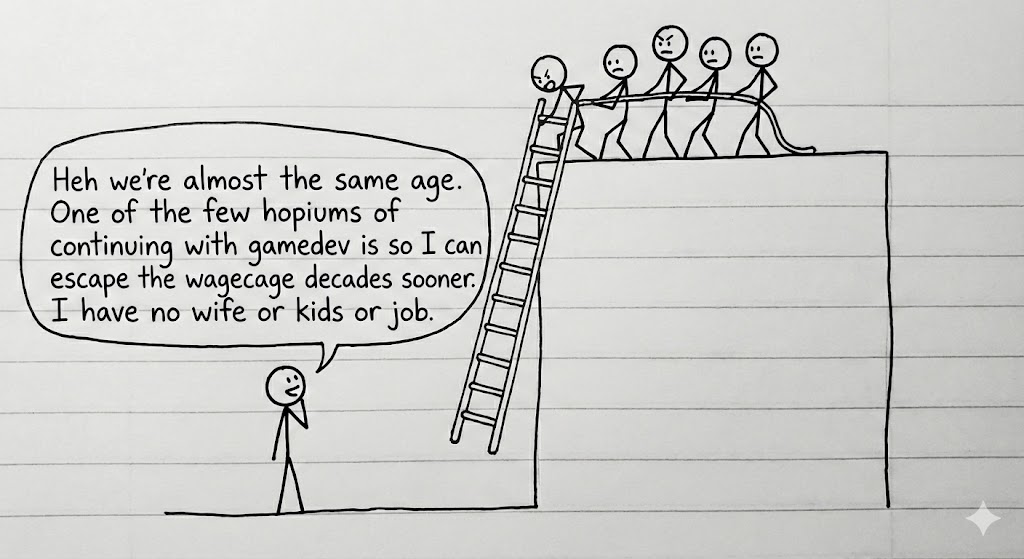 Heh we're almost the same age.
One of the few hopiums of
continuing with gamedev is so I can
escape the wagecage decades sooner.
I have no wife or kids or job.